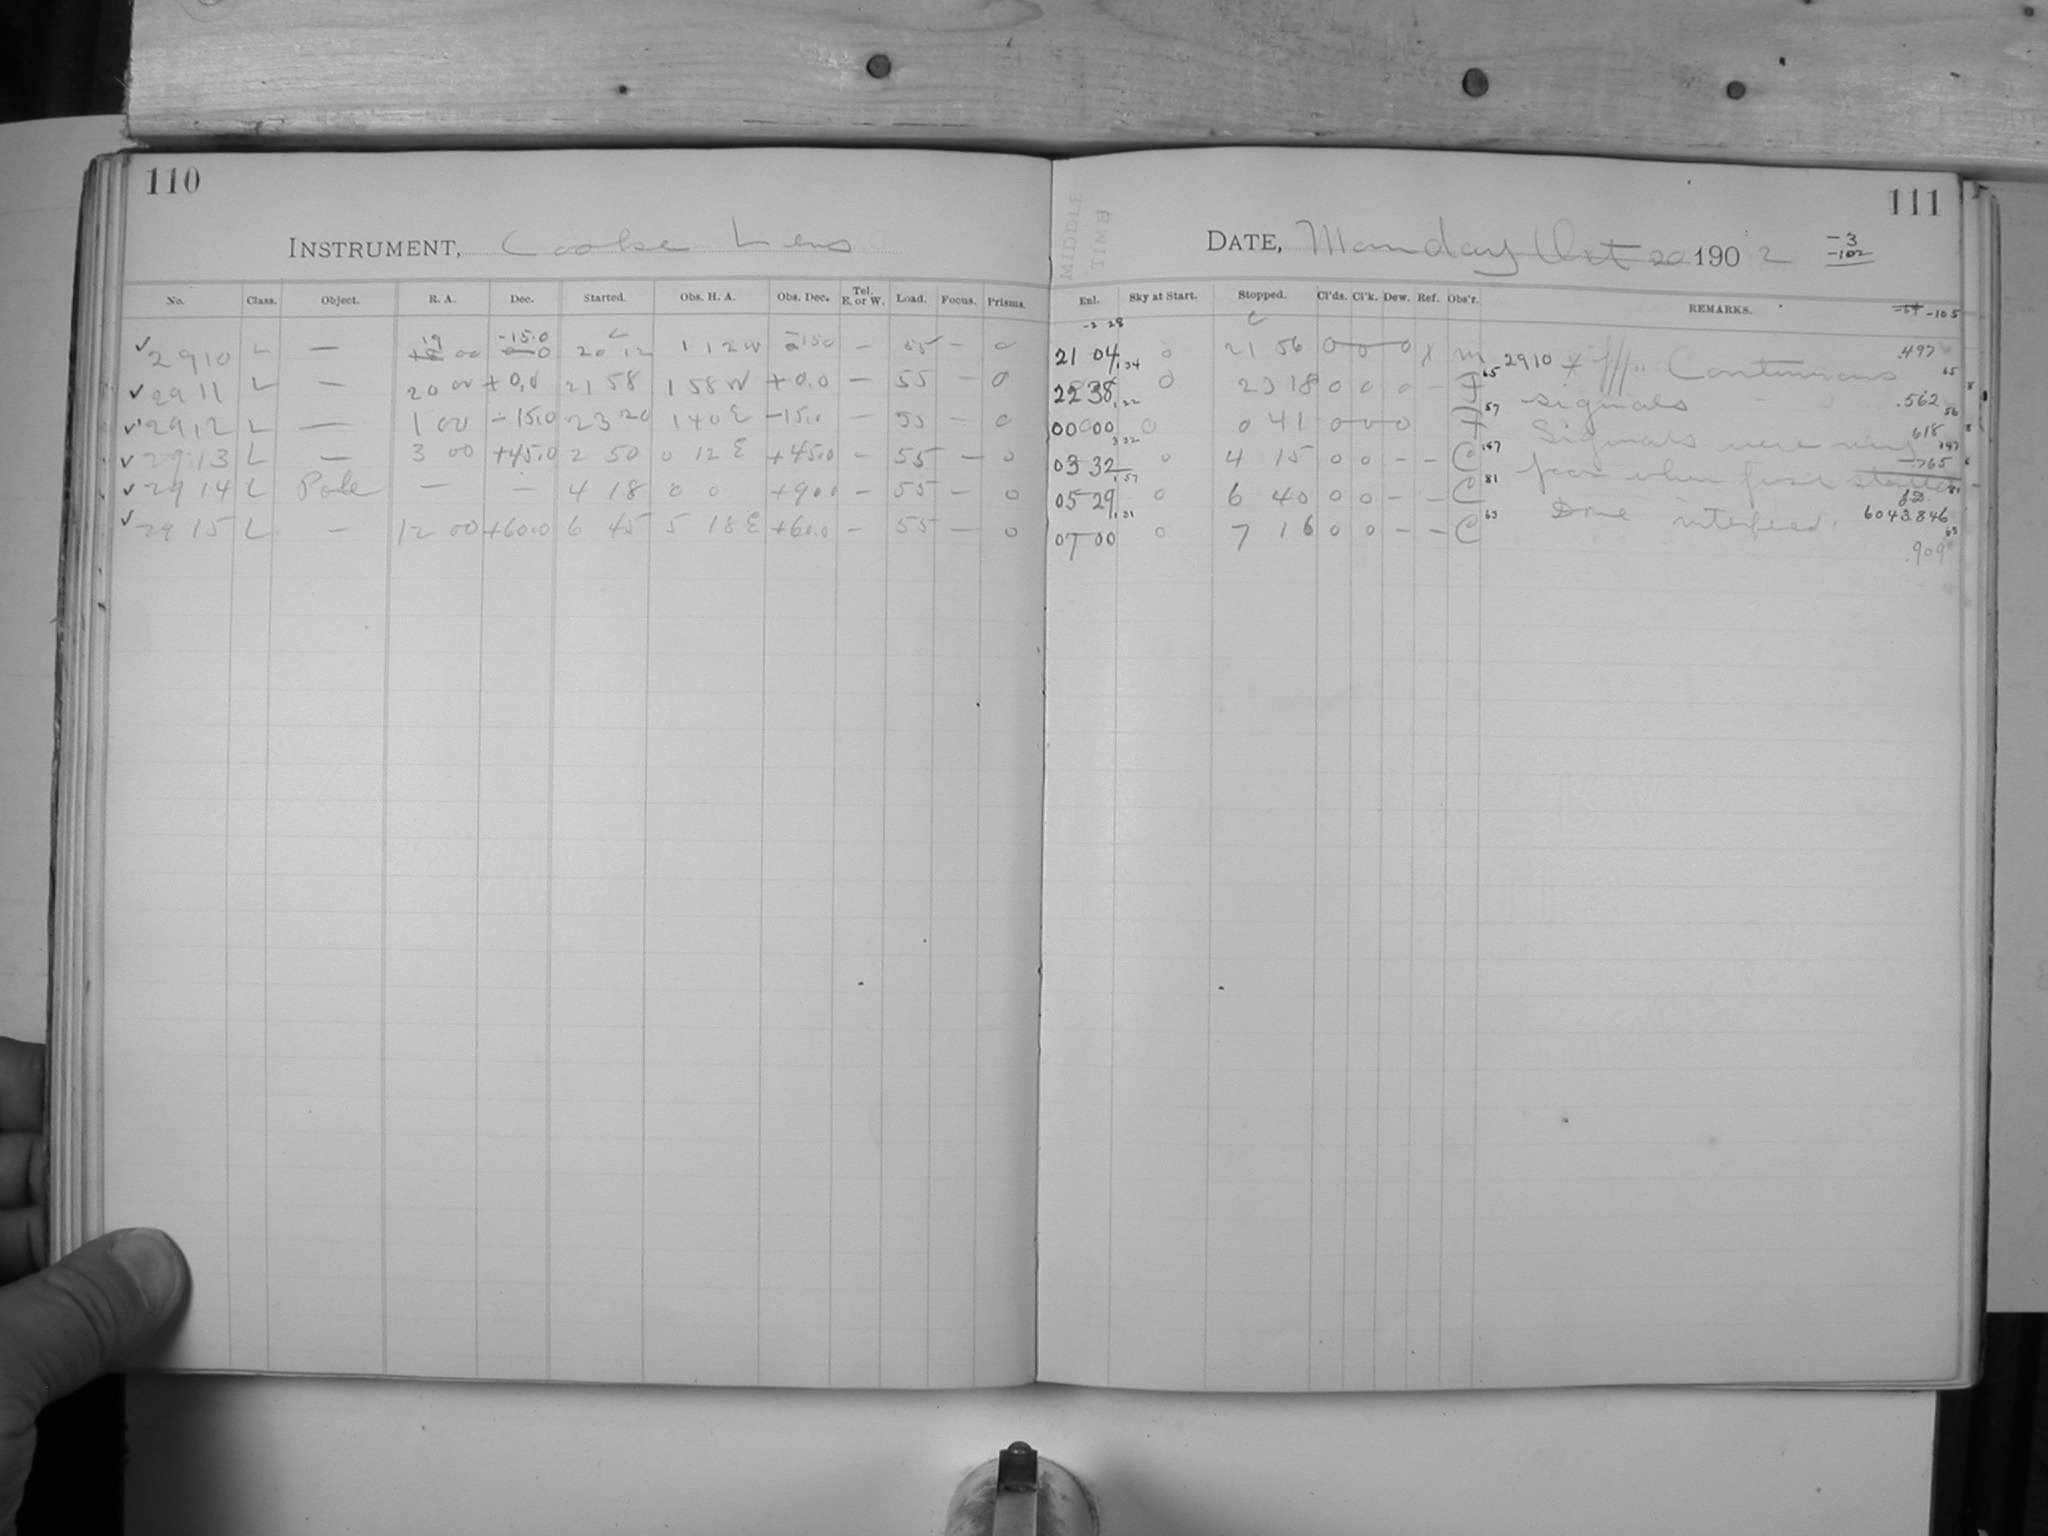 110
INSTRUMENT, Cooke Lens
No. Class. Object. R. A. Dec. Started. Obs. H. A. Obs. Dec. Tel. E. or W. Load. Focus. Prisms.
19 -15.0 c
✓ 2910 L — 18 00 0 0 20 12 1 12 W -15.0 — 55 — 0
✓ 2911 L — 20 00 +0.0 21 58 1 58 W +0.0 — 55 — 0
✓ 2912 L — 1 00 -15.0 23 20 1 40 E -15.0 — 55 — 0
✓ 2913 L — 3 00 +45.0 2 50 0 12 E +45.0 — 55 — 0
✓ 2914 L Pole — — 4 18 0 0 +90.0 — 55 — 0
✓ 2915 L — 12 00 +60.0 6 45 5 18 E +60.0 — 55 — 0
111
MIDDLE TIME
DATE, Monday Oct 20 1902
-3
-102
Enl. Sky at Start. Stopped. Cl'ds. Cl'k. Dew. Ref. Obs'r. REMARKS. -105
-2 28 c
21 04 0 21 56 0 0 0 X m 2910 Continuous .497
1,34 65 65
22 38 0 23 18 0 0 0 — F signals .562
1,22 57 56
00 00 0 0 41 0 0 0 F Signals were very 618
3 32 147 147
03 32 0 4 15 0 0 — — C poor when first started .765
1,57 81 81
05 29 0 6 40 0 0 — — C Dome interfered. J.D. 6043.846
1,31 63 63
07 00 0 7 16 0 0 — — C .909